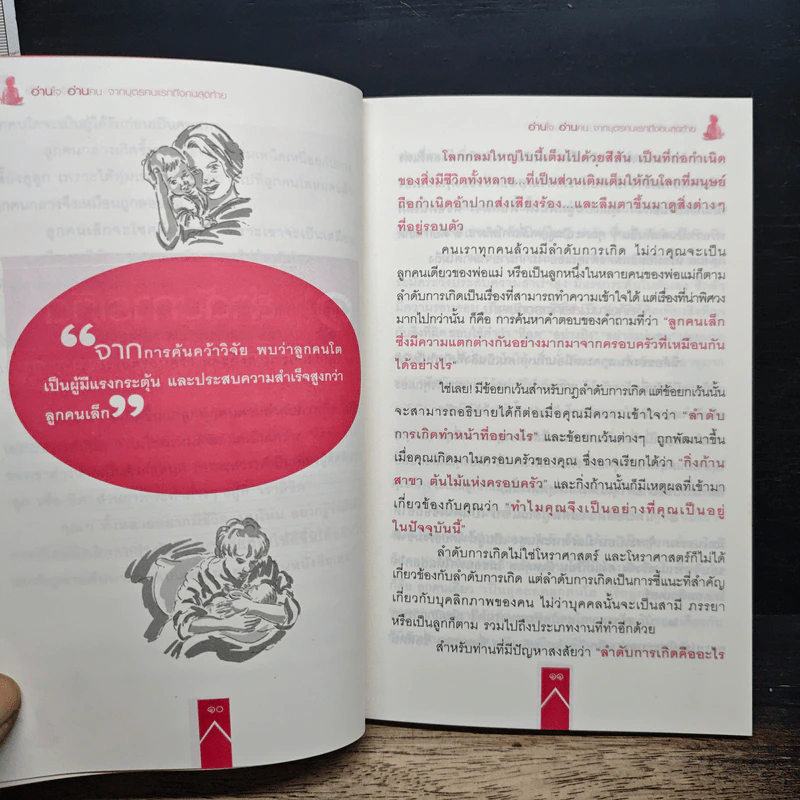 อ่านใจ อ่านคน จากบุตรคนแรกถึงคนสุดท้าย
“จากการค้นคว้าวิจัย พบว่าลูกคนโต
เป็นผู้มีแรงกระตุ้น และประสบความสำเร็จสูงกว่า
ลูกคนเล็ก”
๑๐
อ่านใจ อ่านคน จากบุตรคนแรกถึงคนสุดท้าย
โลกกลมใหญ่ใบนี้เต็มไปด้วยสีสัน เป็นที่ก่อกำเนิด
ของสิ่งมีชีวิตทั้งหลาย...ที่เป็นส่วนเติมเต็มให้กับโลกที่มนุษย์
ถือกำเนิดอ้าปากส่งเสียงร้อง...และลืมตาขึ้นมาดูสิ่งต่างๆ
ที่อยู่รอบตัว
คนเราทุกคนล้วนมีลำดับการเกิด ไม่ว่าคุณจะเป็น
ลูกคนเดียวของพ่อแม่ หรือเป็นลูกหนึ่งในหลายคนของพ่อแม่ก็ตาม
ลำดับการเกิดเป็นเรื่องที่สามารถทำความเข้าใจได้ แต่เรื่องที่น่าพิศวง
มากไปกว่านั้น ก็คือ การค้นหาคำตอบของคำถามที่ว่า “ลูกคนเล็ก
ซึ่งมีความแตกต่างกันอย่างมากมาจากครอบครัวที่เหมือนกัน
ได้อย่างไร”
ใช่เลย! มีข้อยกเว้นสำหรับกฎลำดับการเกิด แต่ข้อยกเว้นนั้น
จะสามารถอธิบายได้ก็ต่อเมื่อคุณมีความเข้าใจว่า “ลำดับ
การเกิดทำหน้าที่อย่างไร” และข้อยกเว้นต่างๆ ถูกพัฒนาขึ้น
เมื่อคุณเกิดมาในครอบครัวของคุณ ซึ่งอาจเรียกได้ว่า “กิ่งก้าน
สาขา ต้นไม้แห่งครอบครัว” และกิ่งก้านนั้นก็มีเหตุผลที่เข้ามา
เกี่ยวข้องกับคุณว่า “ทำไมคุณจึงเป็นอย่างที่คุณเป็นอยู่
ในปัจจุบันนี้”
ลำดับการเกิดไม่ใช่โหราศาสตร์ และโหราศาสตร์ก็ไม่ได้
เกี่ยวข้องกับลำดับการเกิด แต่ลำดับการเกิดเป็นการชี้แนะที่สำคัญ
เกี่ยวกับบุคลิกภาพของคน ไม่ว่าบุคคลนั้นจะเป็นสามี ภรรยา
หรือเป็นลูกก็ตาม รวมไปถึงประเภทงานที่ทำอีกด้วย
สำหรับท่านที่มีปัญหาสงสัยว่า “ลำดับการเกิดคืออะไร
๑๑